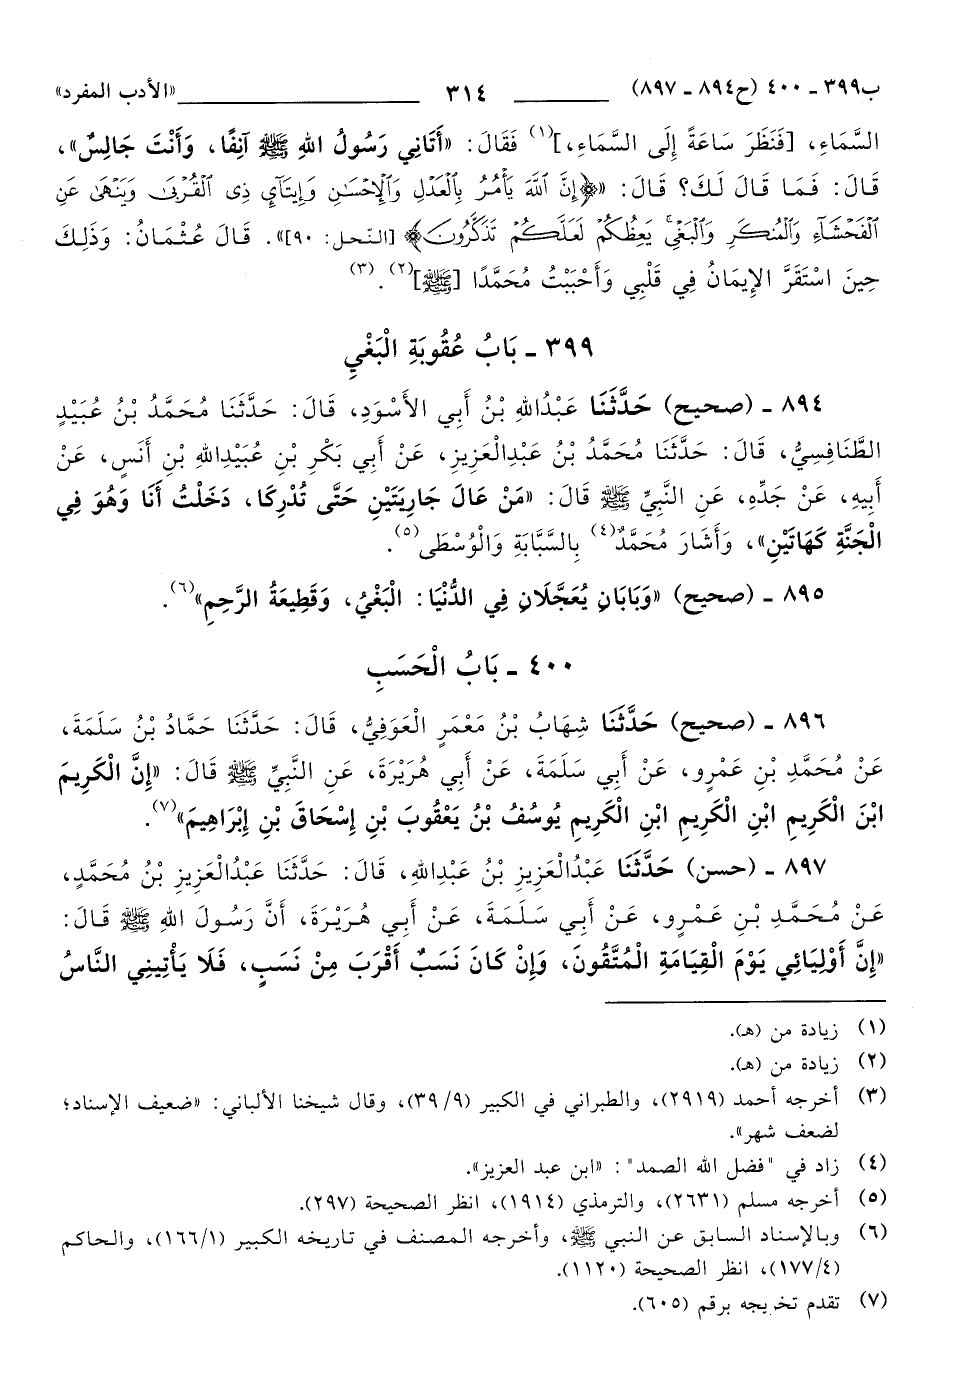 ب٣٩٩ ـ ٤٠٠ (ح٨٩٤ ـ ٨٩٧) ٣١٤ «الأدب المفرد»
السَّمَاءِ، [فَنَظَرَ سَاعَةً إِلَى السَّمَاءِ،](١) فَقَالَ: «أَتَانِي رَسُولُ اللهِ ﷺ آنِفًا، وَأَنْتَ جَالِسٌ»،
قَالَ: فَمَا قَالَ لَكَ؟ قَالَ: «﴿إِنَّ ٱللَّهَ يَأْمُرُ بِٱلْعَدْلِ وَٱلْإِحْسَٰنِ وَإِيتَآئِ ذِى ٱلْقُرْبَىٰ وَيَنْهَىٰ عَنِ
ٱلْفَحْشَآءِ وَٱلْمُنكَرِ وَٱلْبَغْىِ ۚ يَعِظُكُمْ لَعَلَّكُمْ تَذَكَّرُونَ﴾ [النَّحل: ٩٠]». قَالَ عُثْمَانُ: وَذَلِكَ
حِينَ اسْتَقَرَّ الإِيمَانُ فِي قَلْبِي وَأَحْبَبْتُ مُحَمَّدًا [ﷺ](٢) (٣).
٣٩٩ ـ بَابُ عُقُوبَةِ الْبَغْيِ
٨٩٤ ـ (صحيح) حَدَّثَنَا عَبْدُاللهِ بْنُ أَبِي الأَسْوَدِ، قَالَ: حَدَّثَنَا مُحَمَّدُ بْنُ عُبَيْدٍ
الطَّنَافِسِيُّ، قَالَ: حَدَّثَنَا مُحَمَّدُ بْنُ عَبْدِالْعَزِيزِ، عَنْ أَبِي بَكْرِ بْنِ عُبَيْدِاللهِ بْنِ أَنَسٍ، عَنْ
أَبِيهِ، عَنْ جَدِّهِ، عَنِ النَّبِيِّ ﷺ قَالَ: «مَنْ عَالَ جَارِيَتَيْنِ حَتَّى تُدْرِكَا، دَخَلْتُ أَنَا وَهُوَ فِي
الْجَنَّةِ كَهَاتَيْنِ»، وَأَشَارَ مُحَمَّدٌ(٤) بِالسَّبَّابَةِ وَالْوُسْطَى(٥).
٨٩٥ ـ (صحيح) «وَبَابَانِ يُعَجَّلَانِ فِي الدُّنْيَا: الْبَغْيُ، وَقَطِيعَةُ الرَّحِمِ»(٦).
٤٠٠ ـ بَابُ الْحَسَبِ
٨٩٦ ـ (صحيح) حَدَّثَنَا شِهَابُ بْنُ مَعْمَرٍ الْعَوَفِيُّ، قَالَ: حَدَّثَنَا حَمَّادُ بْنُ سَلَمَةَ،
عَنْ مُحَمَّدِ بْنِ عَمْرٍو، عَنْ أَبِي سَلَمَةَ، عَنْ أَبِي هُرَيْرَةَ، عَنِ النَّبِيِّ ﷺ قَالَ: «إِنَّ الْكَرِيمَ
ابْنَ الْكَرِيمِ ابْنِ الْكَرِيمِ ابْنِ الْكَرِيمِ يُوسُفُ بْنُ يَعْقُوبَ بْنِ إِسْحَاقَ بْنِ إِبْرَاهِيمَ»(٧).
٨٩٧ ـ (حسن) حَدَّثَنَا عَبْدُالْعَزِيزِ بْنُ عَبْدِاللهِ، قَالَ: حَدَّثَنَا عَبْدُالْعَزِيزِ بْنُ مُحَمَّدٍ،
عَنْ مُحَمَّدِ بْنِ عَمْرٍو، عَنْ أَبِي سَلَمَةَ، عَنْ أَبِي هُرَيْرَةَ، أَنَّ رَسُولَ اللهِ ﷺ قَالَ:
«إِنَّ أَوْلِيَائِي يَوْمَ الْقِيَامَةِ الْمُتَّقُونَ، وَإِنْ كَانَ نَسَبٌ أَقْرَبَ مِنْ نَسَبٍ، فَلَا يَأْتِينِي النَّاسُ
(١) زيادة من (هـ).
(٢) زيادة من (هـ).
(٣) أخرجه أحمد (٢٩١٩)، والطبراني في الكبير (٣٩/٩)، وقال شيخنا الألباني: «ضعيف الإسناد؛
لضعف شهر».
(٤) زاد في "فضل الله الصمد": «ابن عبد العزيز».
(٥) أخرجه مسلم (٢٦٣١)، والترمذي (١٩١٤)، انظر الصحيحة (٢٩٧).
(٦) وبالإسناد السابق عن النبي ﷺ، وأخرجه المصنف في تاريخه الكبير (١٦٦/١)، والحاكم
(١٧٧/٤)، انظر الصحيحة (١١٢٠).
(٧) تقدم تخريجه برقم (٦٠٥).